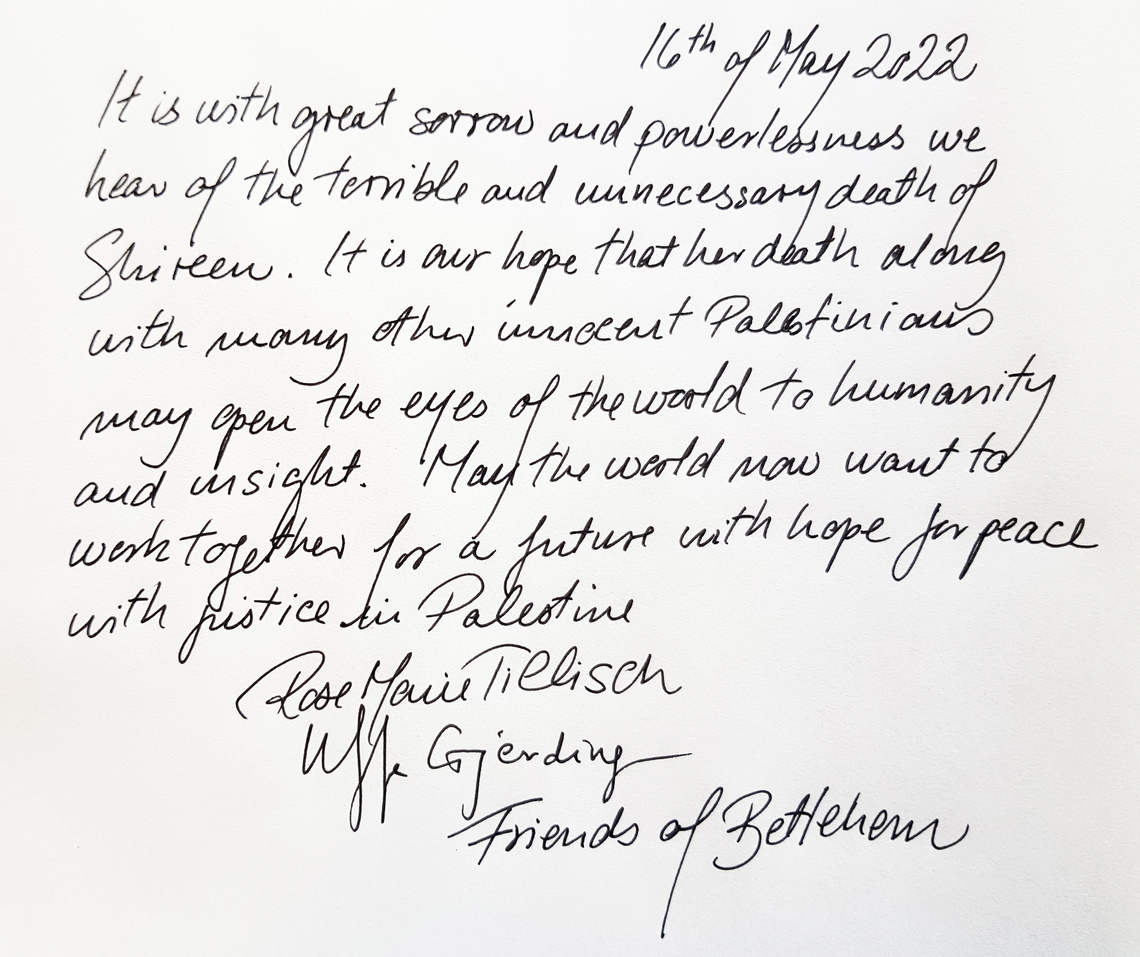 16th of May 2022
It is with great sorrow and powerlessness we
hear of the terrible and unnecessary death of
Shireen. It is our hope that her death along
with many other innocent Palestinians
may open the eyes of the world to humanity
and insight. May the world now want to
work together for a future with hope for peace
with justice in Palestine
Rose Marie Tillisch
Uffe Gjerding
Friends of Betlehem